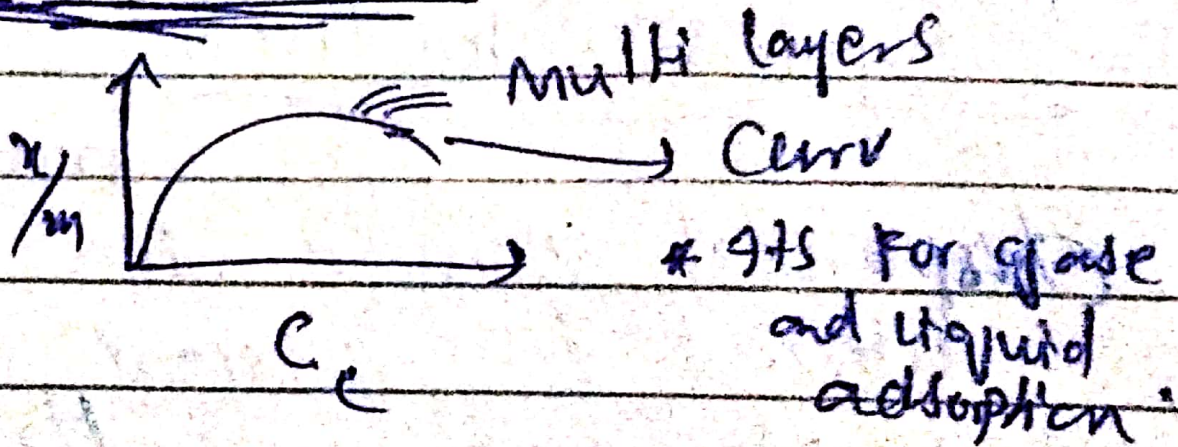 Multi layers
x/m
Curv
* Its For gase
and liquid
adsorption.
C e